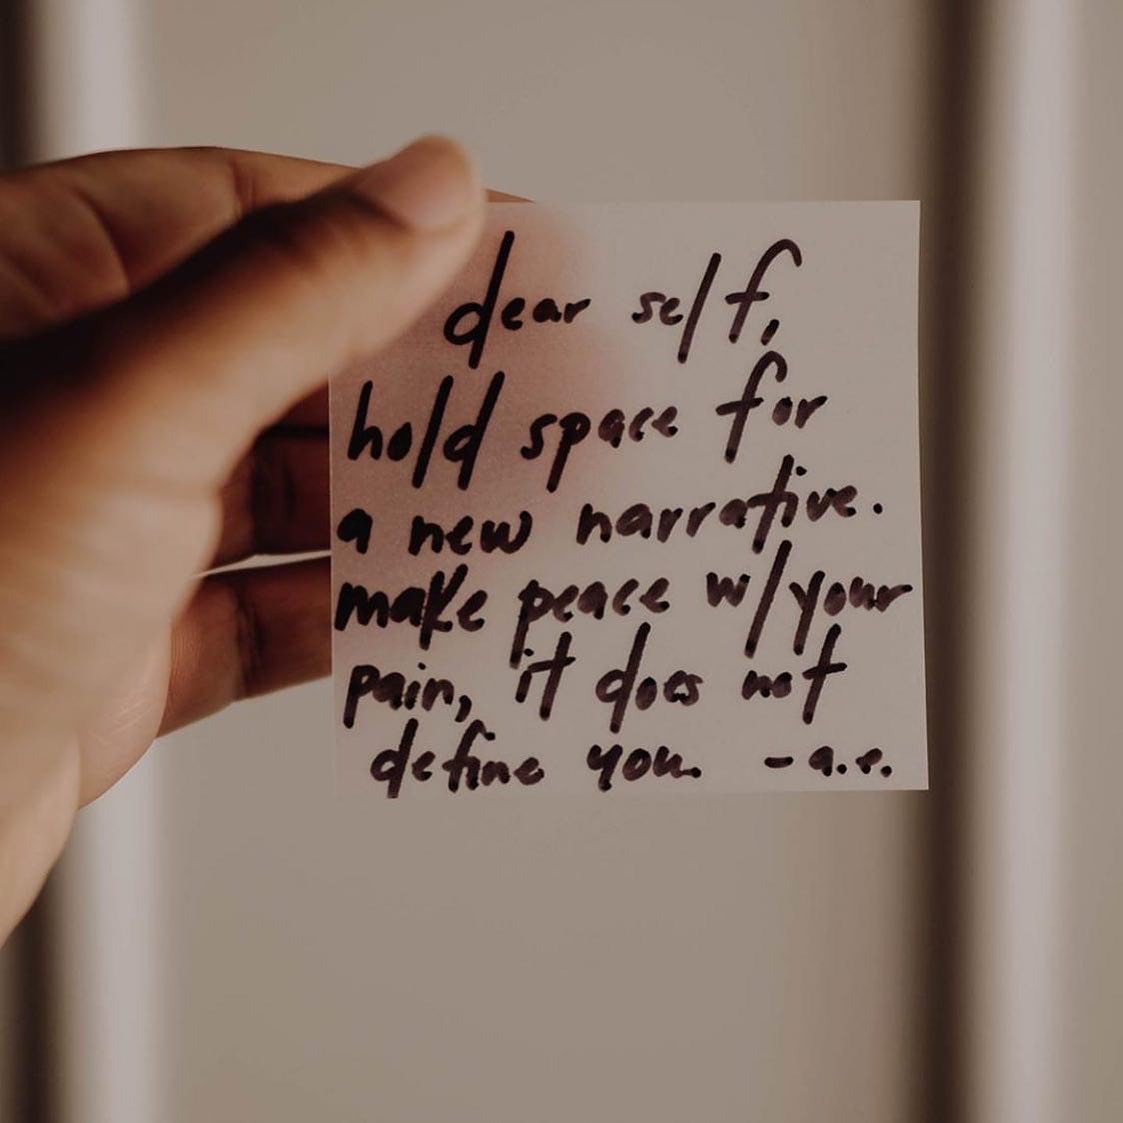 dear self,
hold space for
a new narrative.
make peace w/your
pain, it does not
define you. -a.e.